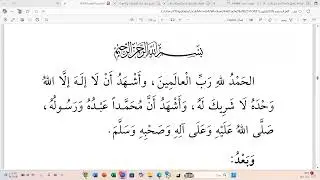 بِسْمِ اللهِ الرَّحْمٰنِ الرَّحِيْمِ
الحَمْدُ للهِ رَبِّ الْعَالَمِينَ، وأَشْهَدُ أَنْ لَا إِلَهَ إِلَّا اللهُ
وَحْدَهُ لَا شَرِيكَ لَهُ، وَأَشْهَدُ أَنَّ مُحَمَّداً عَبْدُهُ وَرَسُولُهُ،
صَلَّى اللهُ عَلَيْهِ وَعَلَى آلِهِ وَصَحْبِهِ وَسَلَّمَ.
وَبَعْدُ: